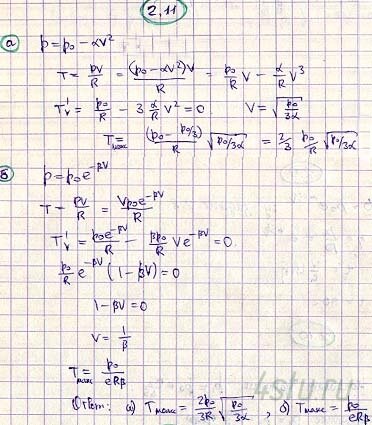 2.11
а) p = p₀ - αV²
T = pV/R = (p₀ - αV²)V/R = p₀/R V - α/R V³
T'ᵥ = p₀/R - 3 α/R V² = 0 V = √(p₀/3α)
Tмакс = (p₀ - p₀/3)/R √(p₀/3α) = 2/3 p₀/R √(p₀/3α)
б) p = p₀e^(-βV)
T = pV/R = Vp₀e^(-βV)/R
T'ᵥ = p₀e^(-βV)/R - βp₀/R Ve^(-βV) = 0
p₀/R e^(-βV) (1 - βV) = 0
1 - βV = 0
V = 1/β
Tмакс = p₀/eRβ
Ответ: а) Tмакс = 2p₀/3R √(p₀/3α), б) Tмакс = p₀/eRβ
4stu.ru